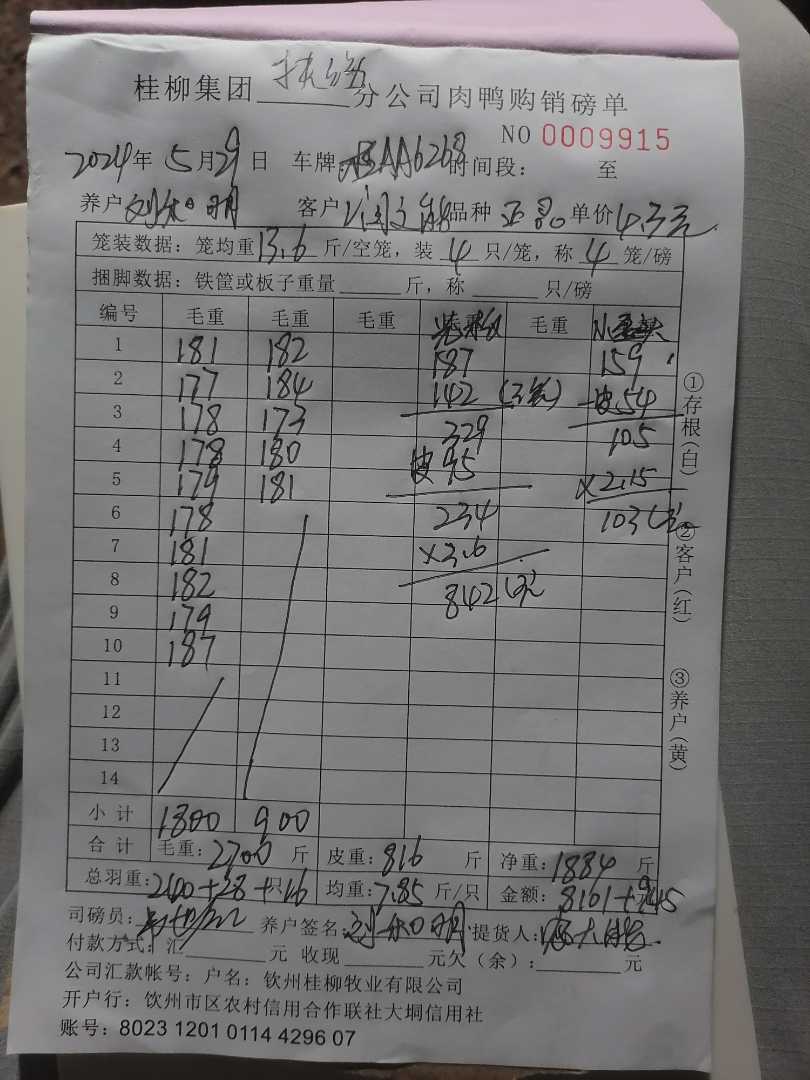 桂柳集团 分公司肉鸭购销磅单
NO 0009915
2024年 5月29日 车牌: AA6268 时间段: 至
养户 刘 明 客户 品种 单价 4.3元
笼装数据: 笼均重 13.6 斤/空笼, 装 4 只/笼, 称 4 笼/磅
捆脚数据: 铁筐或板子重量 斤, 称 只/磅
编号 毛重 毛重 毛重 毛重
1 181 182 187 159
2 177 184 142 皮54
3 178 173 329 105
4 178 180 皮95
5 179 181 ×2.15
6 178 234 103
7 181 ×3.6
8 182 842元
9 179
10 187
11
12
13
14
小计 1800 900
合计 毛重: 2700 斤 皮重: 816 斤 净重: 1884 斤
总羽重: +28+16 只 均重: 7.85 斤/只 金额: 8101+945
司磅员: 养户签名: 刘 明 提货人:
付款方式: 汇 元 收现 元欠(余): 元
公司汇款帐号: 户名: 钦州桂柳牧业有限公司
开户行: 钦州市区农村信用合作联社大垌信用社
账号: 8023 1201 0114 4296 07
①存根(白)
②客户(红)
③养户(黄)